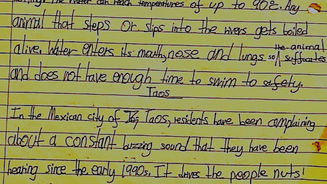 the water can reach temperatures of up to 90℃. Any
animal that steps or slips into the rivers gets boiled
alive. Water enters its mouth, nose and lungs so the animal suffocates
and does not have enough time to swim to safety.
Taos
In the Mexican city of Taos, residents have been complaining
about a constant buzzing sound that they have been
hearing since the early 1990s. It drives the people nuts!